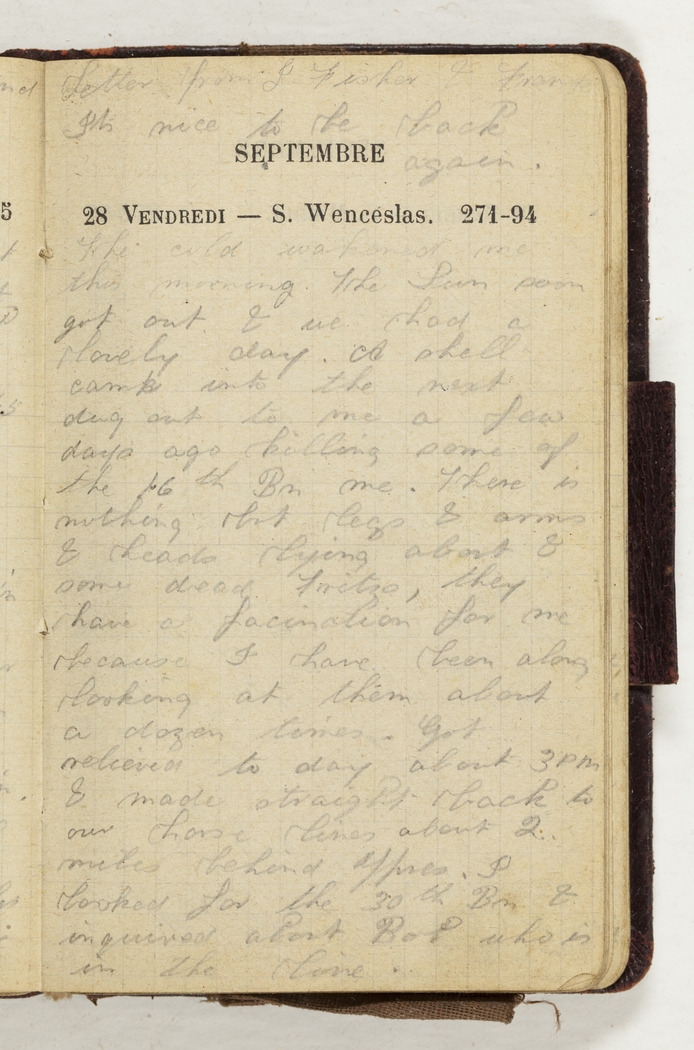 Letter from J Fisher & Frank
Its nice to be back
SEPTEMBRE
again.
28 VENDREDI — S. Wenceslas. 271-94
The cold wakened me
this morning. The Sun soon
got out & we had a
lovely day. A shell
came into the next
dug out to me a few
days ago killing some of
the 16th Bn me. There is
nothing but legs & arms
& heads lying about &
some dead Fritzs, they
have a facination for me
because I have been along
looking at them about
a dozen times. Got
relieved to day about 3PM
& made straight back to
our horse lines about 2.
miles behind Ypres. I
looked for the 30th Bn &
inquired about Bob who is
in the line.